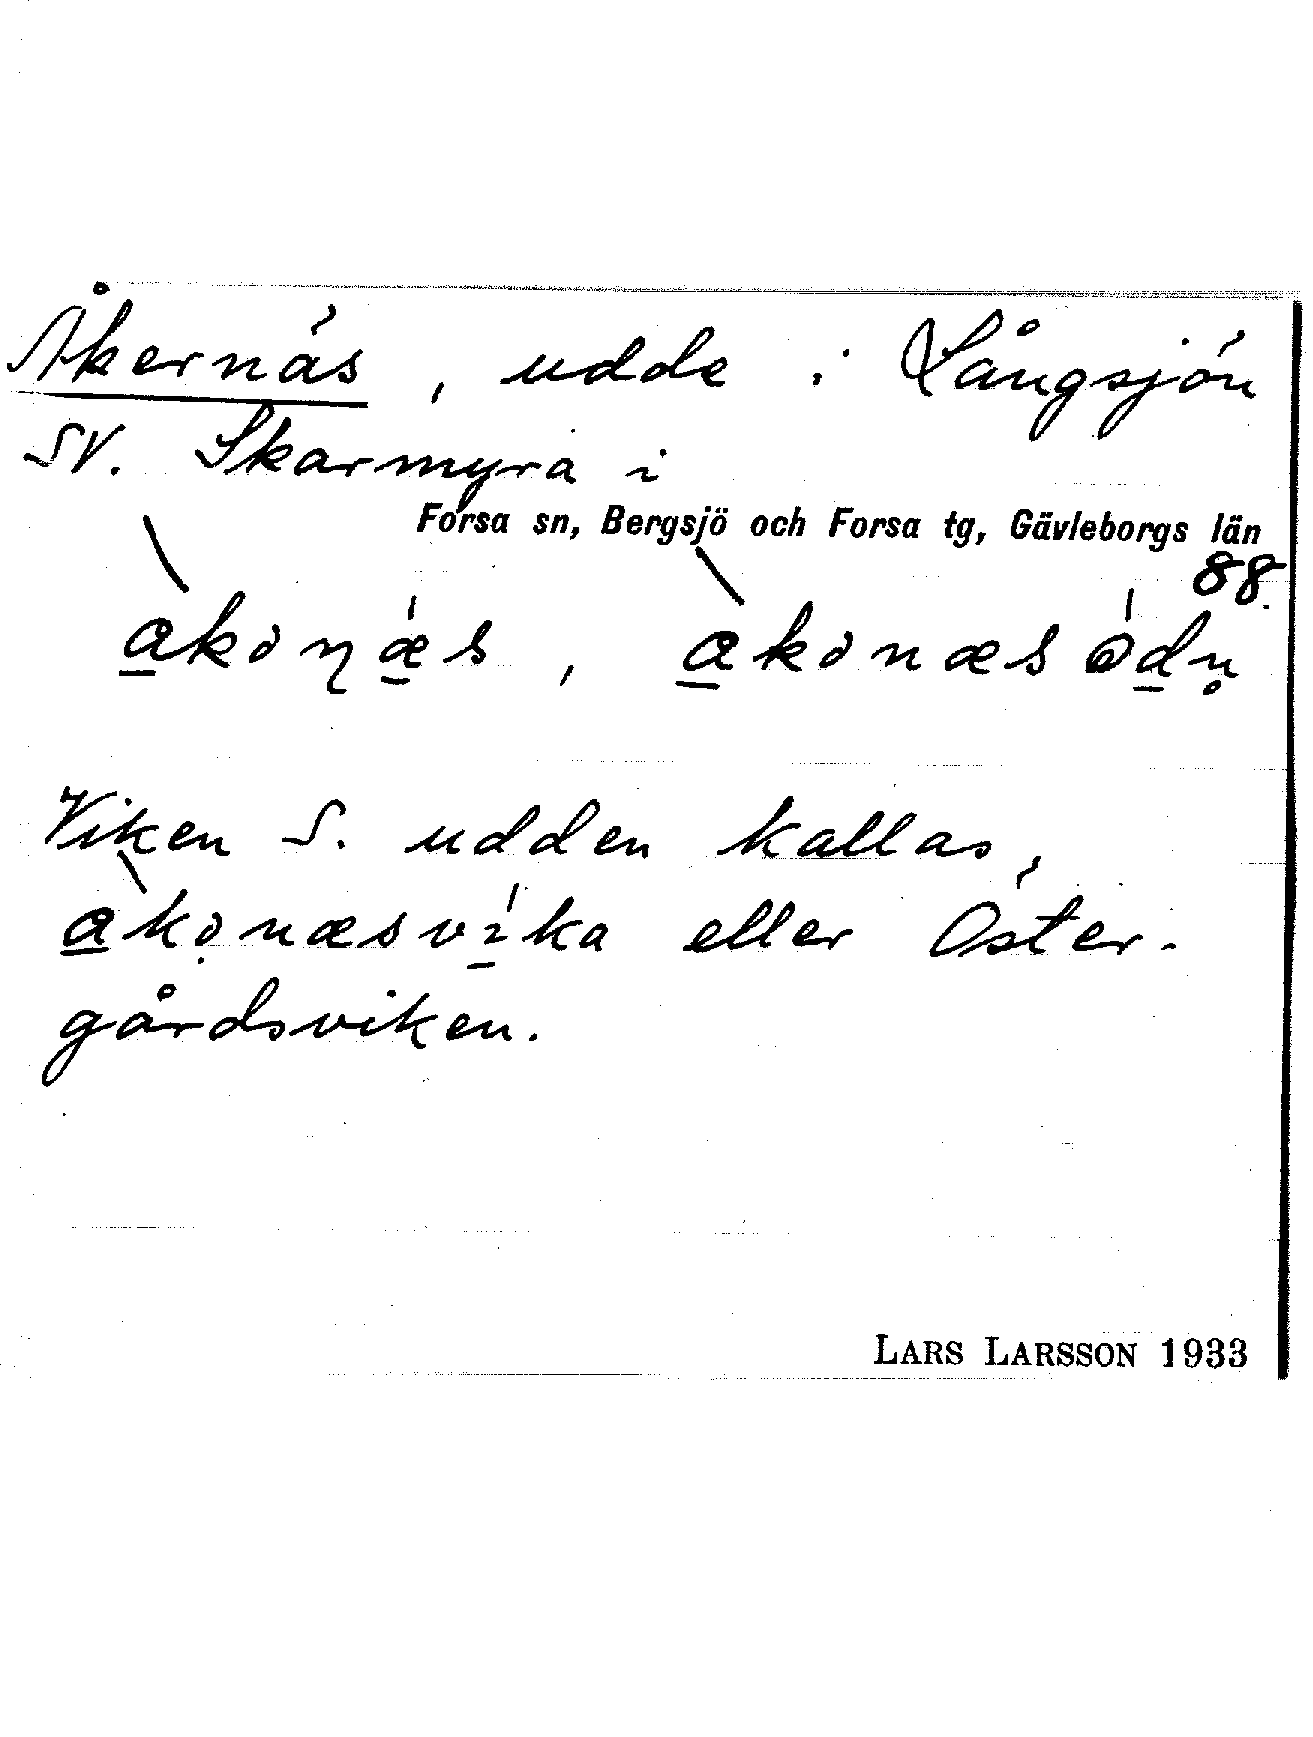 Åkernäs, udde i Långsjön
SV. Skarmyra i
Forsa sn, Bergsjö och Forsa tg, Gävleborgs län
88.
Viken S. udden kallas,
eller Öster-
gårdsviken.
LARS LARSSON 1933